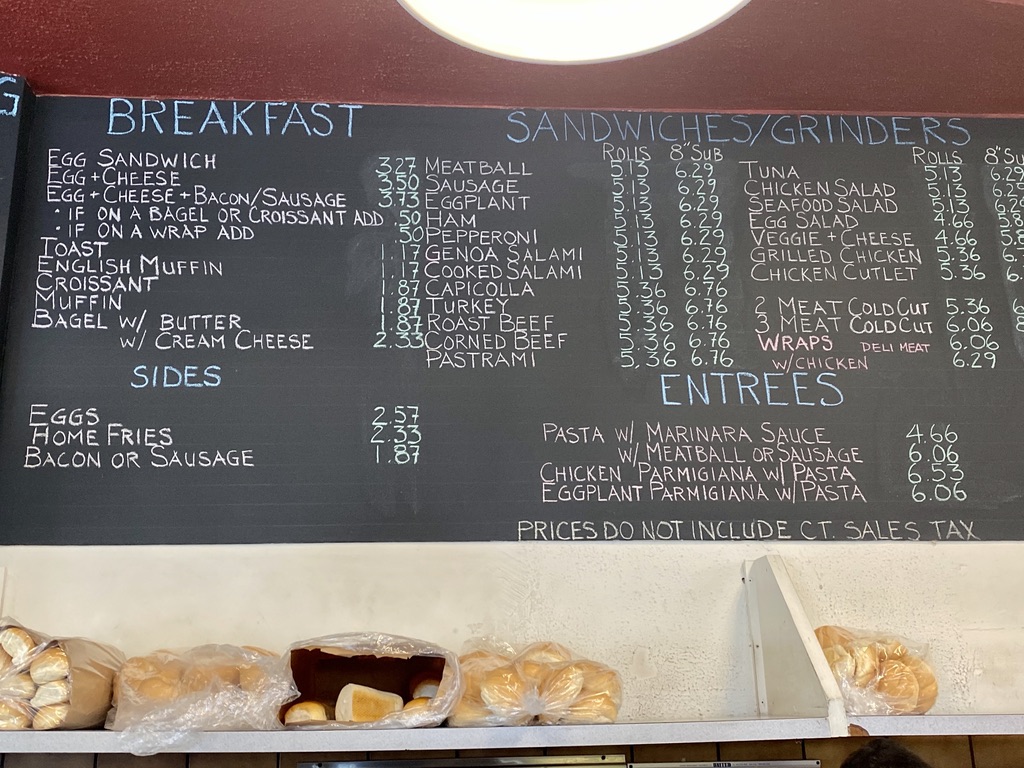 G
BREAKFAST
EGG SANDWICH 3.27
EGG + CHEESE 3.50
EGG + CHEESE + BACON/SAUSAGE 3.73
• IF ON A BAGEL OR CROISSANT ADD .50
• IF ON A WRAP ADD .50
TOAST 1.17
ENGLISH MUFFIN 1.17
CROISSANT 1.87
MUFFIN 1.87
BAGEL W/ BUTTER 1.87
W/ CREAM CHEESE 2.33
SIDES
EGGS 2.57
HOME FRIES 2.33
BACON OR SAUSAGE 1.87
SANDWICHES/GRINDERS
ROLLS 8" SUB
MEATBALL 5.13 6.29
SAUSAGE 5.13 6.29
EGGPLANT 5.13 6.29
HAM 5.13 6.29
PEPPERONI 5.13 6.29
GENOA SALAMI 5.13 6.29
COOKED SALAMI 5.13 6.29
CAPICOLLA 5.36 6.76
TURKEY 5.36 6.76
ROAST BEEF 5.36 6.76
CORNED BEEF 5.36 6.76
PASTRAMI 5.36 6.76
ROLLS 8" SU
TUNA 5.13 6.29
CHICKEN SALAD 5.13 6.2
SEAFOOD SALAD 5.13 6.2
EGG SALAD 4.66 5.8
VEGGIE + CHEESE 4.66 5.8
GRILLED CHICKEN 5.36 6.
CHICKEN CUTLET 5.36 6.
2 MEAT COLD CUT 5.36 6
3 MEAT COLD CUT 6.06
WRAPS DELI MEAT 6.06
W/CHICKEN 6.29
ENTREES
PASTA W/ MARINARA SAUCE 4.66
W/ MEATBALL OR SAUSAGE 6.06
CHICKEN PARMIGIANA W/ PASTA 6.53
EGGPLANT PARMIGIANA W/ PASTA 6.06
PRICES DO NOT INCLUDE CT. SALES TAX